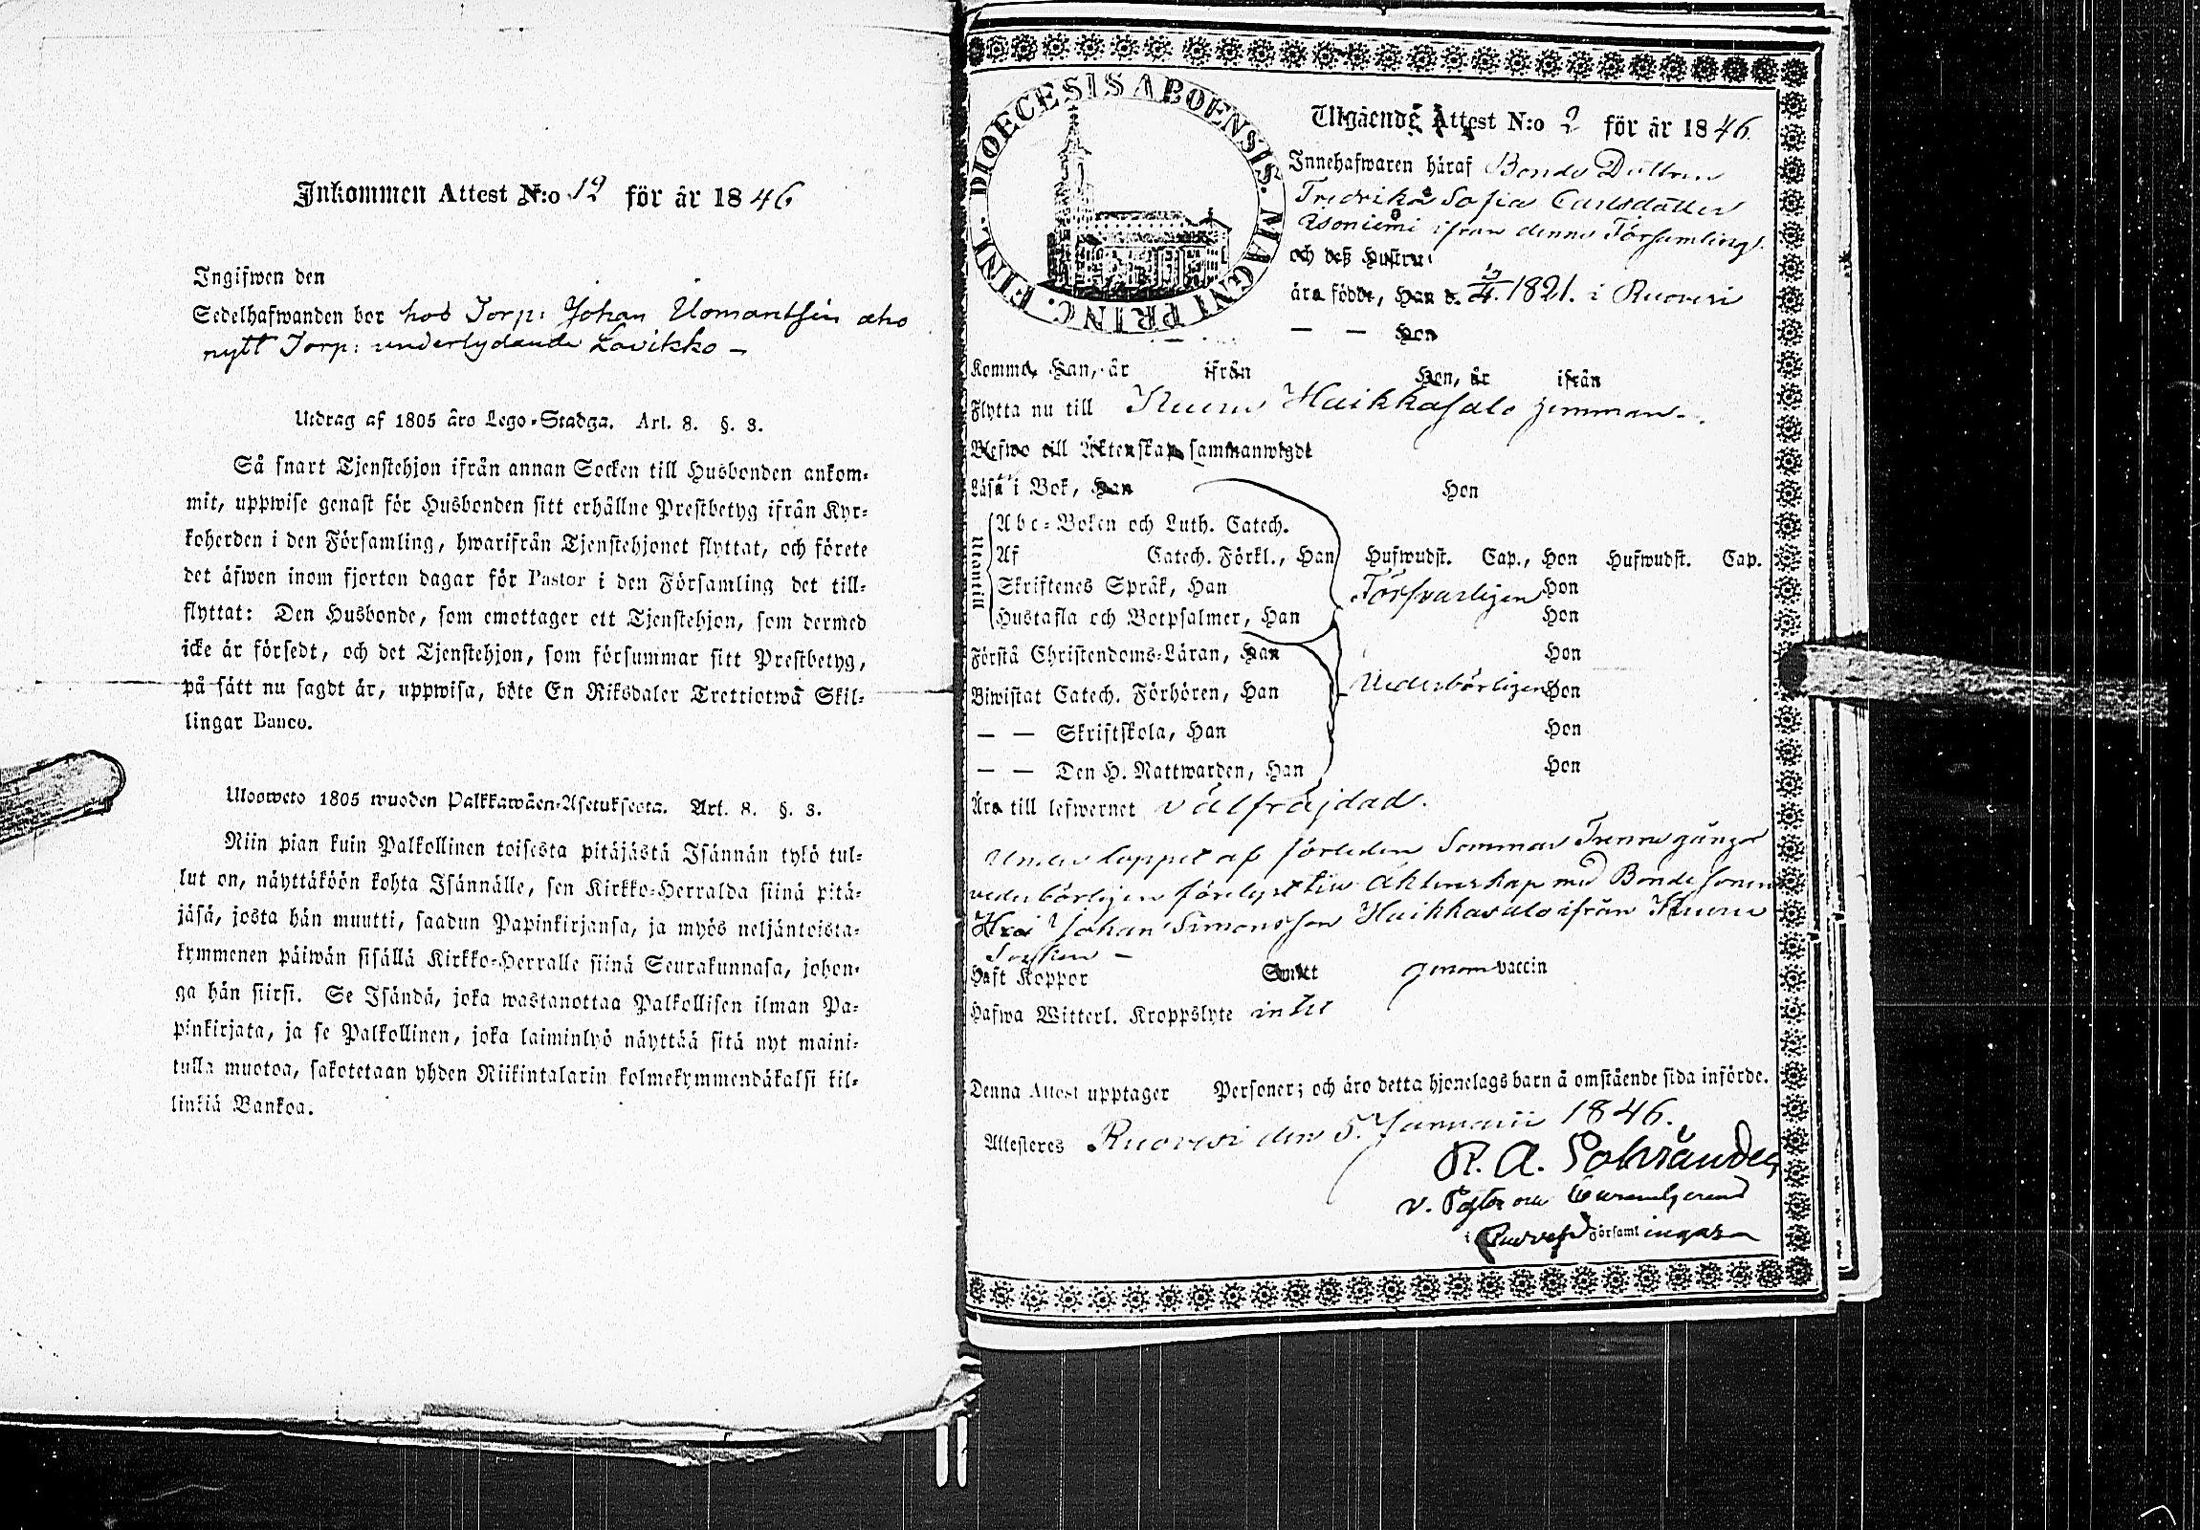 Inkommen Attest N:o 12 för år 1846
Ingifwen den
Sedelhafwanden bor hos Torp: Johan Uomantsin aho
nytt Torp: underlydande Lavikko –
Utdrag af 1805 års Lego-Stadga. Art. 8. §. 3.
Så snart Tjenstehjon ifrån annan Socken till Husbonden ankom-
mit, uppwise genast för Husbonden sitt erhållne Prestbetyg ifrån Kyr-
koherden i den Församling, hwarifrån Tjenstehjonet flyttat, och förete
det äfwen inom fjorton dagar för Pastor i den Församling det till-
flyttat: Den Husbonde, som emottager ett Tjenstehjon, som dermed
icke är försedt, och det Tjenstehjon, som försummar sitt Prestbetyg,
på sätt nu sagdt är, uppwisa, böte En Riksdaler Trettiotwå Skil-
lingar Banco.
Ulosweto 1805 wuoden Palkkawäen-Asetuksesta. Art. 8. §. 3.
Niin pian kuin Palkollinen toisesta pitäjästä Isännän tykö tul-
lut on, näyttäköön kohta Isännälle, sen Kirkko-Herralda siinä pitä-
jäsä, josta hän muutti, saadun Papinkirjansa, ja myös neljäntoista-
kymmenen päiwän sisällä Kirkko-Herralle siinä Seurakunnasa, johon-
ga hän siirsi. Se Isändä, joka wastanottaa Palkollisen ilman Pa-
pinkirjata, ja se Palkollinen, joka laiminlyö näyttää sitä nyt maini-
tulla muotoa, sakotetaan yhden Riikintalarin kolmekymmendäkaksi kil-
linkiä Bankoa.
DIOECESIS ABOENSIS. MAGNI PRINC. FINL.
Utgående Attest N:o 2 för år 1846.
Innehafwaren häraf Bonde Dottren
Fredrika Sofia Carlsdotter
Usoniemi ifrån denna Församling.
och deß Hustru
äro födde, Han d. 12/4. 1821. i Ruovesi
— — Hon
Komme, Han, år ifrån Hon, år ifrån
Flytta nu till Kuru Haikkasalo hemman.
Blefwo till Äktenskap sammanwigde
Läsa i Bok, Han Hon
Utantill
Abc-Boken och Luth. Catech.
Af Catech. Förkl., Han Hufwudst. Cap., Hon Hufwudst. Cap.
Skriftenes Språk, Han Försvarligen Hon
Hustafla och Botpsalmer, Han Hon
Förstå Christendoms-Läran, Han Hon
Biwistat Catech. Förhören, Han Vederbörligen Hon
— — Skriftskola, Han Hon
— — Den H. Nattwarden, Han Hon
Äro till lefwernet välfräjdad.
Under loppet af förleden Sommar Trenne gånger
vederbörligen förelyst till Äktenskap med Bonde Sonen
Johan Simonsson Haikkasalo ifrån Kuru
Socken –
Haft Koppor Smitt genom vaccin
Hafwa Witterl. Kroppslyte intet
Denna Attest upptager Personer; och äro detta hjonelags barn å omstående sida införde.
Attesteres Ruovesi den 5. Januarii 1846.
R. A.
v. Pastor
i Ruovesi Församlingar